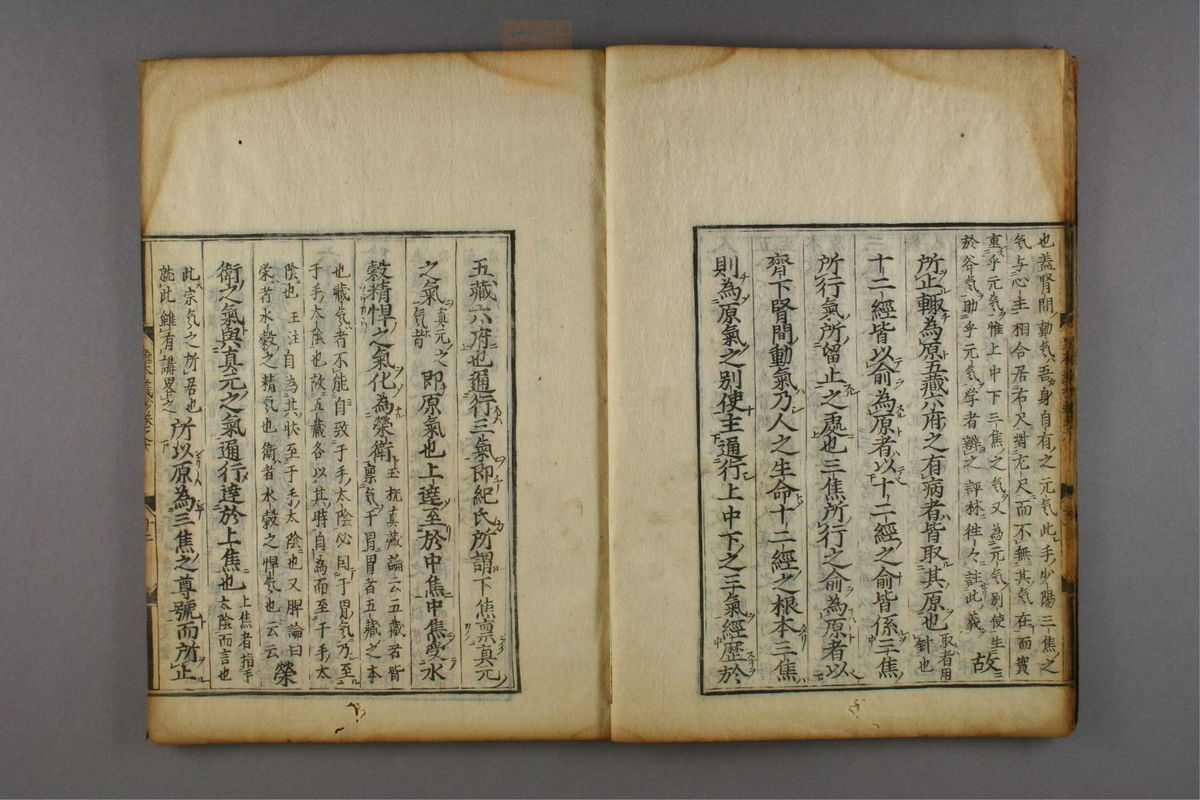 也蓋腎間動気吾身自有之元気此手少陽三焦之
気与心主相合居右尺督尢尺而不無其気在而實
重乎元気惟上中下三焦之気又為元気別使生
於谷気助乎元気学者辧之評林徃々註此義故
所止輙為原五藏六府之有病者皆取其原也取者用針也
十二經皆以俞為原者以十二經之俞皆係三焦
所行氣所留止之處也三焦所行之俞為原者以
齊下腎間動氣乃人之生命十二經之根本三焦
則為原氣之別使主通行上中下之三氣經歷於
五藏六府也通行三氣即紀氏所謂下焦禀真元
之氣真元之気者即原氣也上達至於中焦中焦受水
穀精悍之氣化為榮衛玉机真藏論云五藏者皆禀気于胃胃者五藏之本
也藏気者不能自致于手太陰必因于胃気乃至
于手太陰也故五藏各以其時自為而至于手太
陰也王注自為其状至于手太陰也又脾論曰
栄者水穀之精気也衛者水穀之悍気也云云榮
衛之氣與真元之氣通行達於上焦也上焦者指手太陰而言也
此宗気之所居也就此雖有講畧之所以原為三焦之尊號而所止